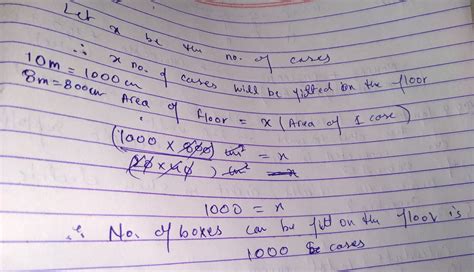 Let x be the no. of cases
∴ x no. of cases will be fitted on the floor
10m = 1000 cm
8m = 800cm
Area of floor = x (Area of 1 case)
(1000 × 800) cm² = x
(20 × 40) cm²
1000 = x
∴ No. of boxes can be fit on the floor is
1000 cases